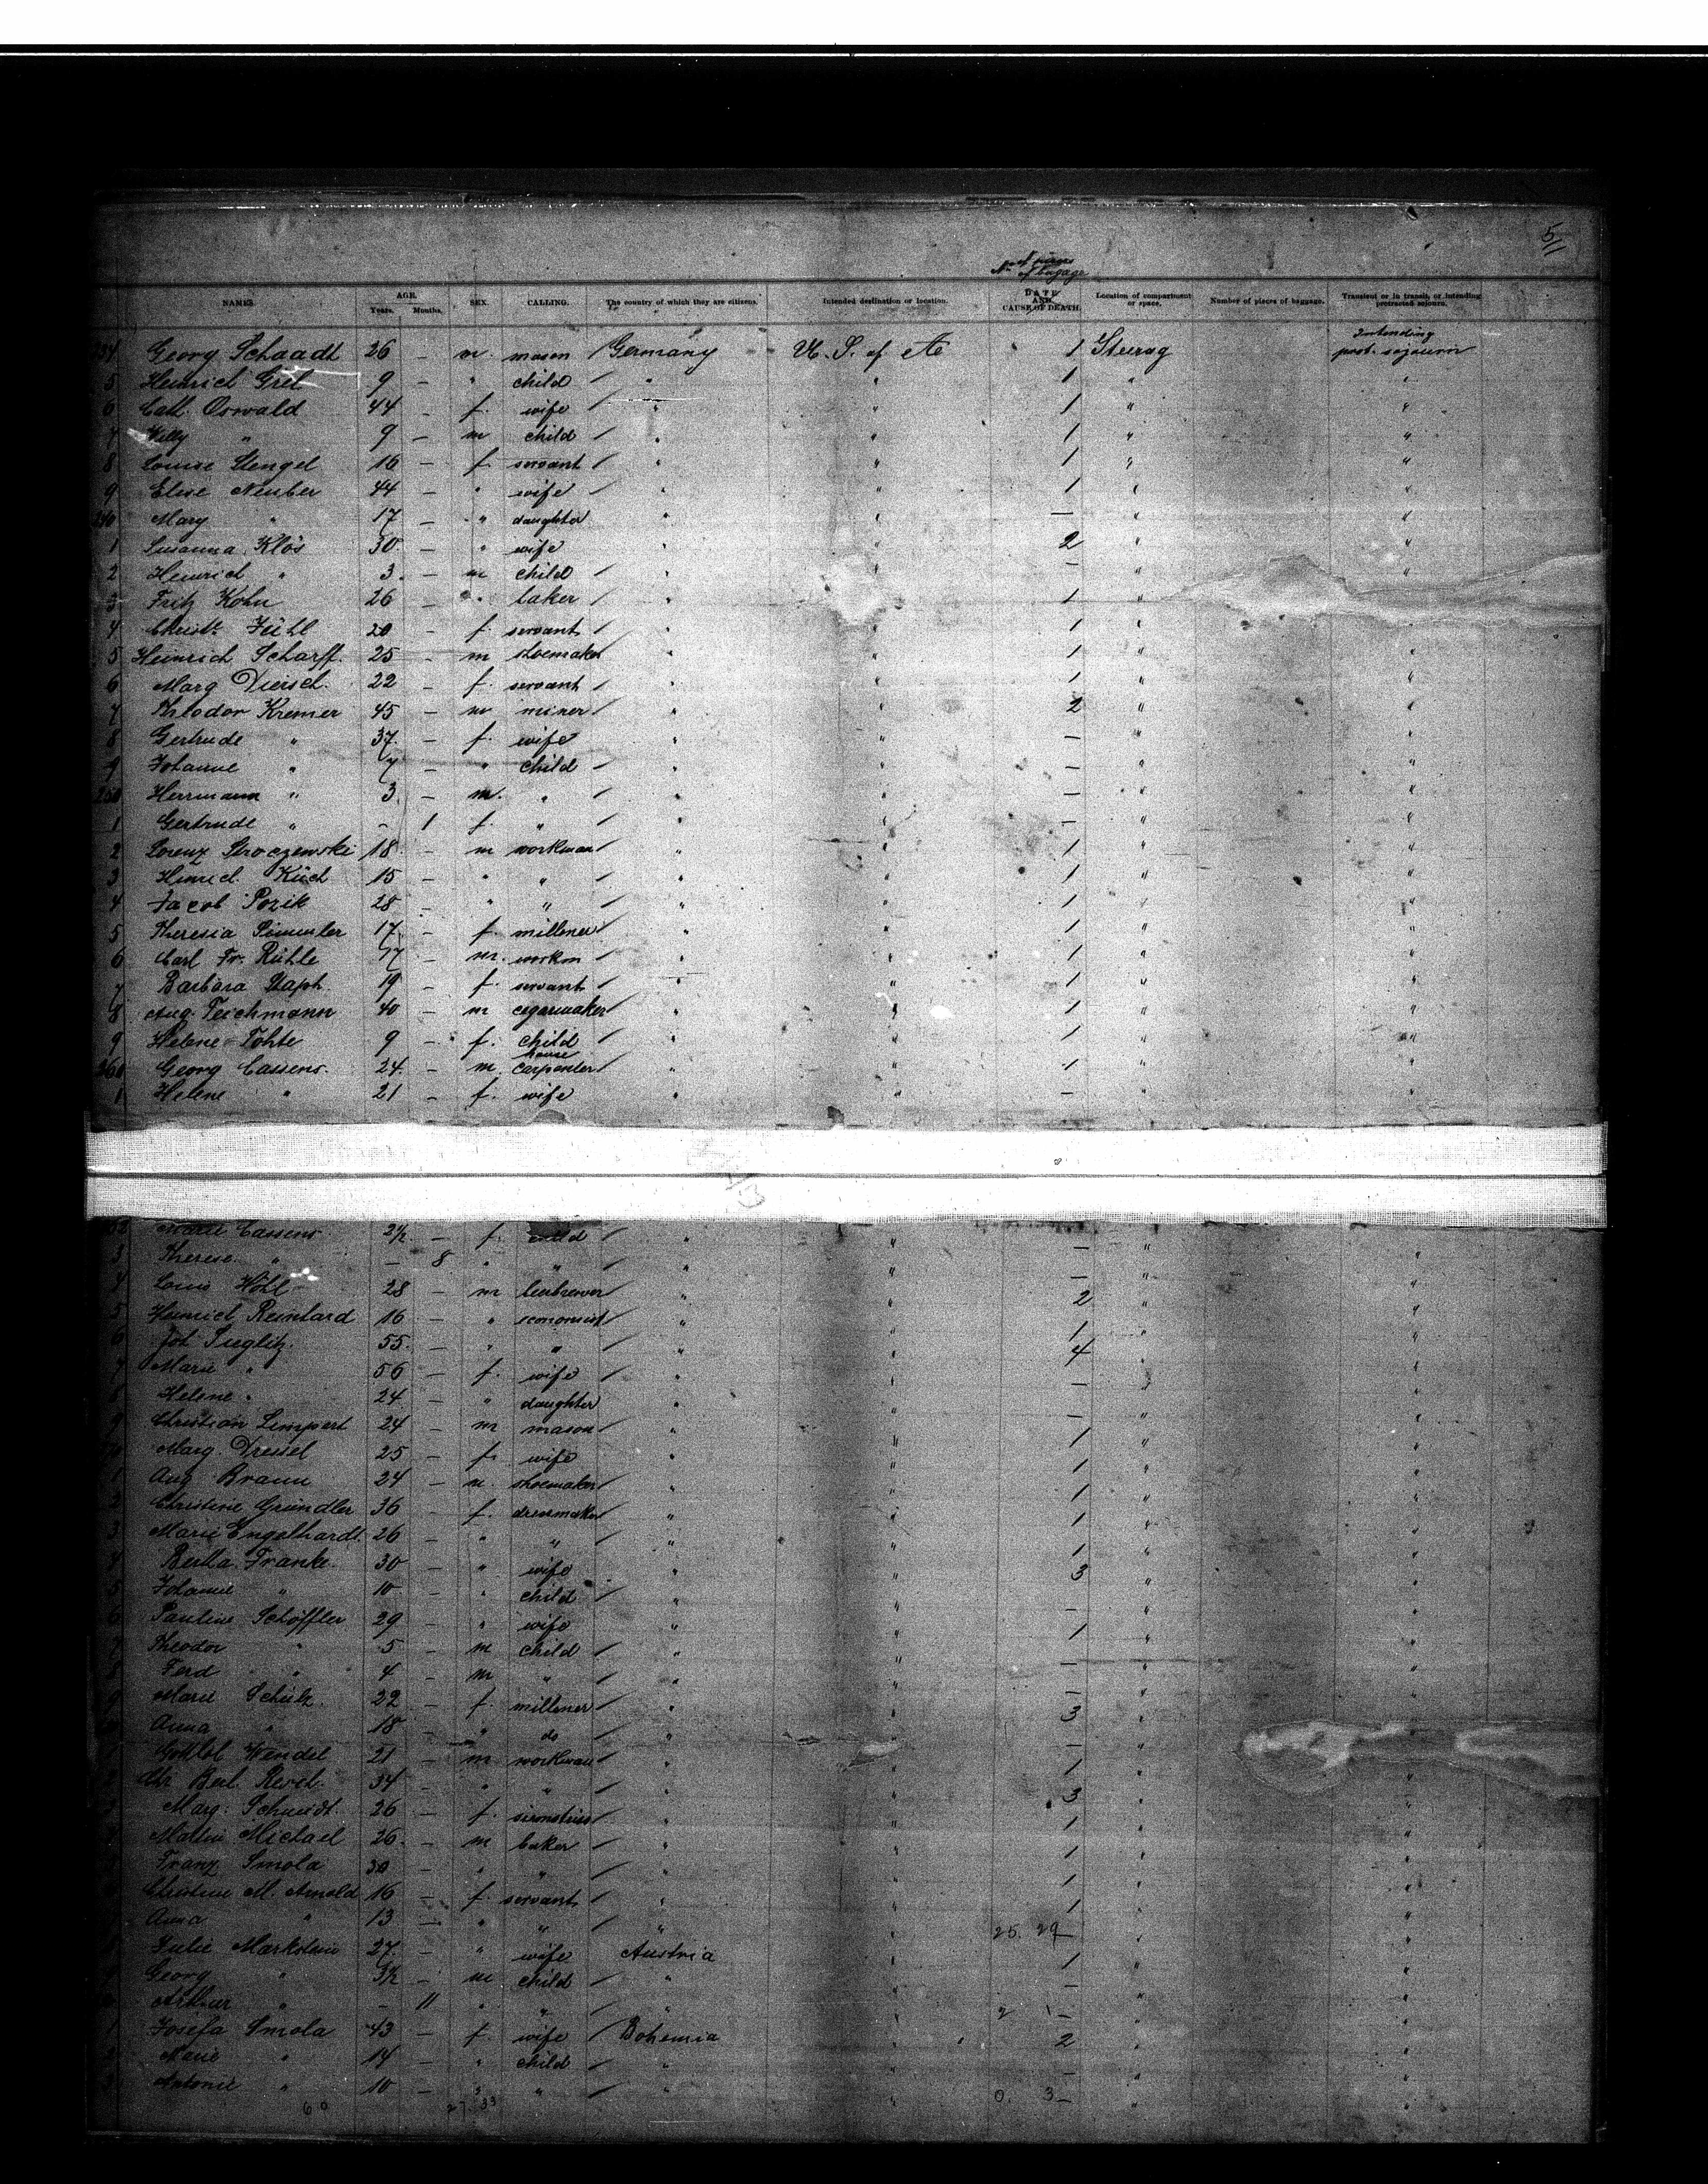 5
No of pieces of bagage
NAMES. AGE. Years. Months. SEX. CALLING. The country of which they are citizens. Intended destination or location. DATE AND CAUSE OF DEATH. Location of compartment or space. Number of pieces of baggage. Transient or in transit, or intending protracted sojourn.
234 Georg Schaadt 26 m. mason Germany U. S. of A 1 Steerag Intending prot. sojourn
5 Heinrich Grel 9 — " child / " " 1 " "
6 Cath. Oswald 44 — f. wife / " " 1 " "
7 Willy " 9 — m child / " " 1 " "
8 Louise Stengel 16 — f. servant / " " 1 " "
9 Elise Neuber 44 — " wife / " " 1 " "
240 Mary " 17 — " daughter " " — " "
1 Susanna Klös 30 — " wife " " 2 " "
2 Heinrich " 3 — m child / " " — " "
3 Fritz Kohn 26 — " baker / " 1 " "
4 Christe Jühl 20 — f. servant / " " 1 " "
5 Heinrich Scharff. 25 — m shoemaker " " 1 " "
6 Marg 22 — f. servant / " " 1 " "
7 Theodor Kremer 45 — m miner / " " 2 " "
8 Gertrude " 37 — f. wife / " " — " "
9 Johanne " 7 — " child / " " — " "
250 Herrmann " 3 — m. " / " " — " "
1 Gertrude " — 1 f. " / " " — " "
2 Lorenz 18 — m workman / " " 1 " "
3 Heinrich Küch 15 — " " / " " 1 " "
4 Jacob Pozik 28 — " " / " " 1 " "
5 Theresia 17 — f. milliner / " " 1 " "
6 Carl Fr. Rühle 17 — m. workm / " " 1 " "
7 Barbara Staph. 19 — f. servant / " " 1 " "
8 Aug. Teichmann 40 — m cigarmaker " " 1 " "
9 Helene Tohte 9 — f. child " " 1 " "
260 Georg Cassens. 24 — m. house carpenter / " " 1 " "
1 Helene " 21 — f. wife " " — " "
Marie Cassens 2½ — f. child / " " — " "
3 Therese " — 8 " " / " " — " "
4 Louis Wöhl 28 — m beerbrewer " " 2 " "
5 Heinrich Reinhard 16 — " economist / " " 1 " "
6 Joh 55 — " " / " " 4 " "
7 Marie " 56 — f. wife / " " — " "
8 Helene " 24 — " daughter " " — " "
9 Christian Lempert 24 — m mason / " " 1 " "
Marg. Dressel 25 — f. wife / " " 1 " "
1 Aug Braun 24 — m. shoemaker / " " 1 " "
2 Christine Gründler 36 — f. dressmaker " " 1 " "
3 Marie Engelhardt 26 — " " / " " 1 " "
4 Bertha Franke. 30 — " wife / " " 3 " "
5 Johanne " 10 — " child / " " — " "
6 Pauline Schöffler 29 — " wife / " " 1 " "
7 Theodor " 5 — m child / " " — " "
8 Ferd " 4 — m " / " " — " "
9 Marie Schulz. 22 — f. milliner / " " 3 " "
Anna " 18 — " do / " " — "
Gottlob Wendel 21 — m workman / " " 1 " "
Chr. 34 — " " / " " 3 " "
Marg. Schmidt 26 — f. " " 1 " "
Michael 26 — m baker / " " 1 " "
Franz Smola 30 — " " / " " 1 " "
Christine M. Arnold 16 — f. servant / " " 1 " "
Anna " 13 — " " / " " — " "
25. 29
Julie Markstein 27 — " wife Austria " 1 " "
Georg " 3½ — m child / " " — " "
Arthur " — 11 " " / " " — " "
2 1
1 Josefa Smola 43 — f. wife / Bohemia " 2 " "
2 Marie " 14 — " child / " " — " "
3 Antonie " 10 — " " / " " — " "
60 27.33 0. 3